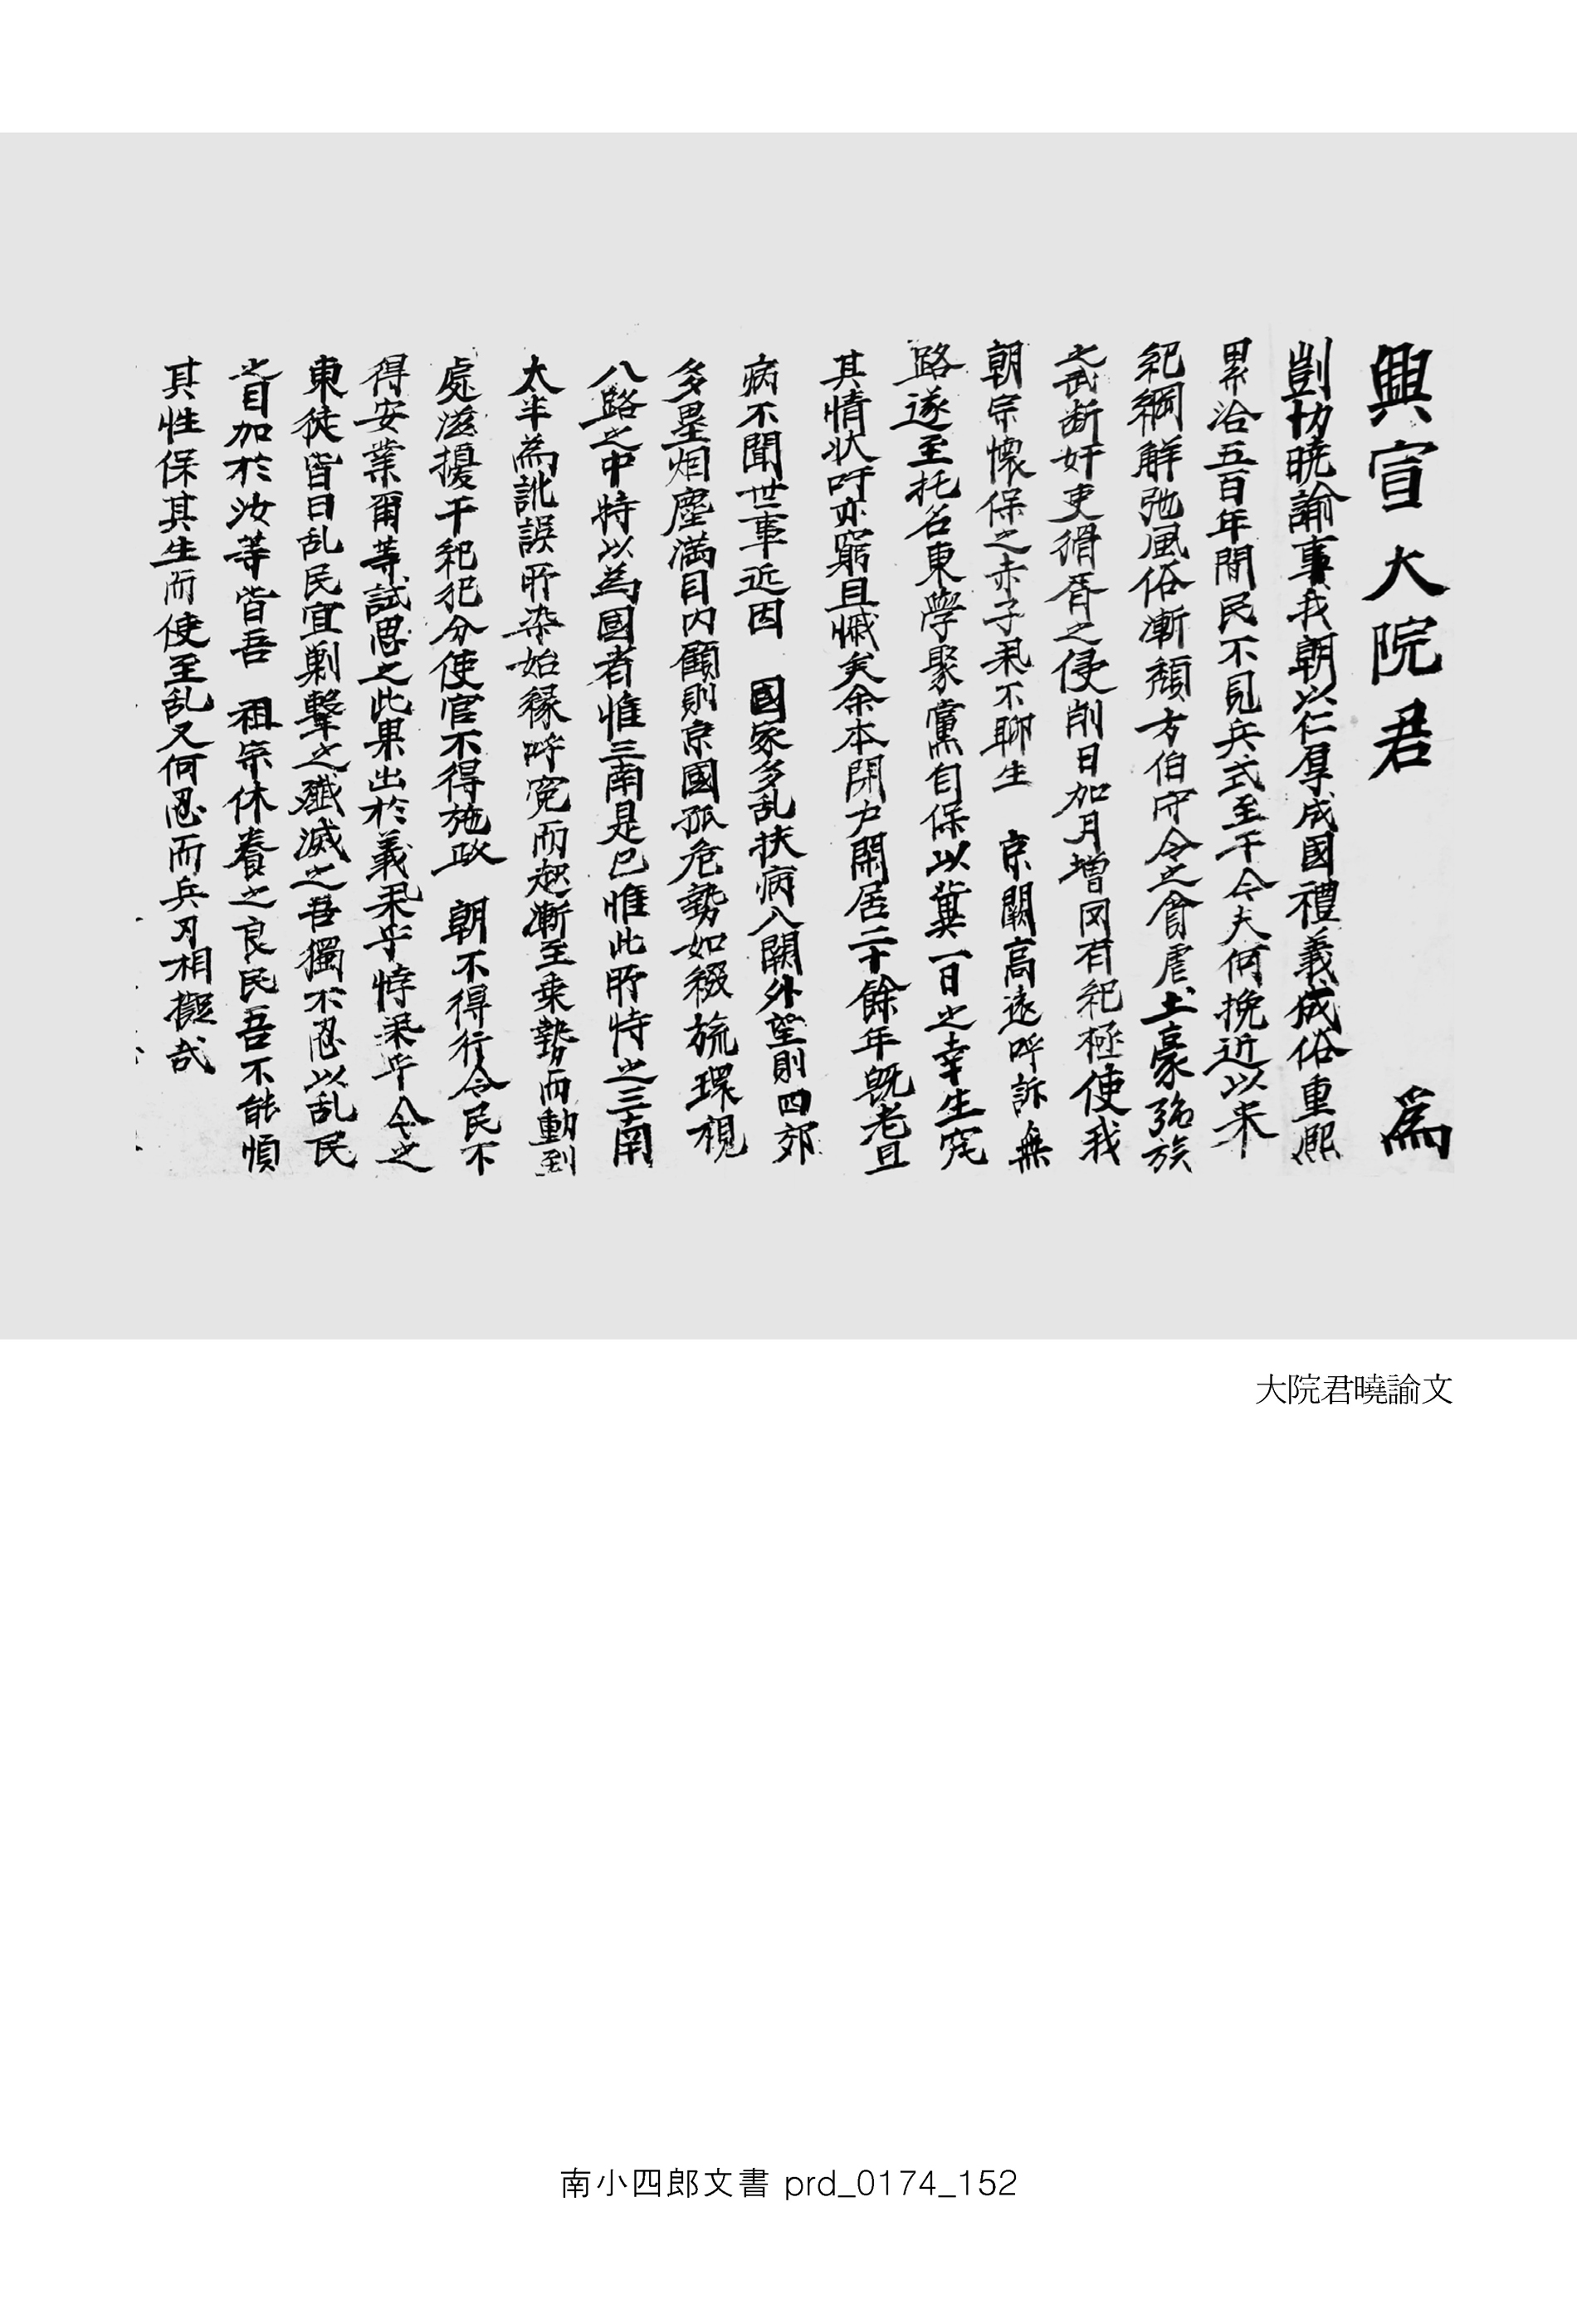 興宣大院君 爲
剴切曉諭事我朝以仁厚成國禮義成俗重熙
累洽五百年間民不見兵式至于今夫何挽近以来
紀綱解弛風俗漸頹方伯守令之貪虐土豪強族
之武断奸吏猾胥之侵削日加月增罔有紀極使我
朝宗懷保之赤子汞不聊生 京闕高遠呼訴無
路遂至托名東學聚黨自保以冀一日之幸生究
其情状吁亦窮且慽矣余本閉户閑居二十餘年旣老且
病不聞世事近因 國家多乱扶病入闕外望則四郊
多壘烟塵滿目内顧則京國孤危勢如綴旒環視
八路之中特以為國者惟三南是已惟此所恃之三南
太半為訛誤所染始緣呼寃而起漸至乗勢而動到
處滋擾干紀犯分使官不得施政 朝不得行令民不
得安業爾等試思之此果出於義汞乎悖汞乎今之
東徒皆曰乱民宜剿擊之殲滅之吾獨不忍以乱民
之目加於汝等皆吾 祖宗休養之良民吾不能順
其性保其生而使至乱又何忍而兵刃相擬哉
大院君曉諭文
南小四郎文書 prd_0174_152